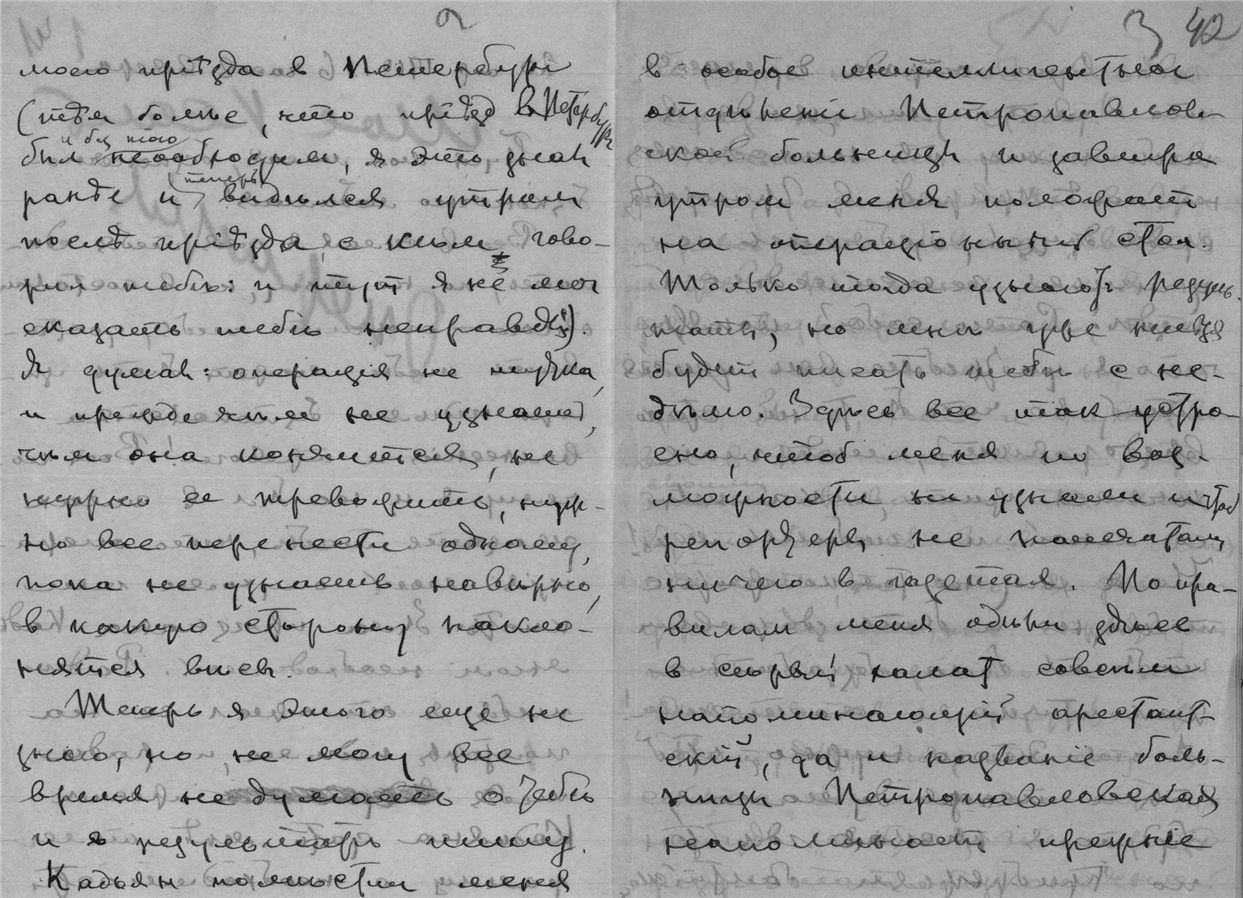 2
моего прiѣзда в Петербург
(тѣм болѣе, что прiѣзд в Петербург
и без того
был необходим, я это знал
теперь
ранѣе и видѣлся утром
послѣ прiѣзда с кѣм гово-
рил тебѣ: и тут я не мог
сказать тебѣ неправды).
Я думал: операцiя не шутка,
и прежде чѣм не узнаешь,
чѣм она кончится, не
нужно ее тревожить, нуж-
но все перенести одному,
пока не узнаешь навѣрно,
в какую сторону накло-
нятся вѣсы.
Теперь я этого еще не
знаю, но не могу все
время не думать о тебѣ
и в результатѣ пишу.
Кадьян помѣстил меня
3 42
в особое интеллигентное
отдѣленiе Петропавлов-
ской больницы и завтра
утром меня положат
на операцiонный стол.
Только тогда узнают резуль-
таты, но мнѣ уже нельзя
будет писать тебѣ с не-
дѣлю. Здѣсь все так устро-
ено, чтоб меня по воз-
можности не узнали и чтоб
репортеры не напечатали
ничего в газетах. По пра-
вилам меня одѣли здѣсь
в сѣрый халат совсѣм
напоминающiй арестант-
скiй, да и названiе боль-
ницы Петропавловская
напоминает прежнiе